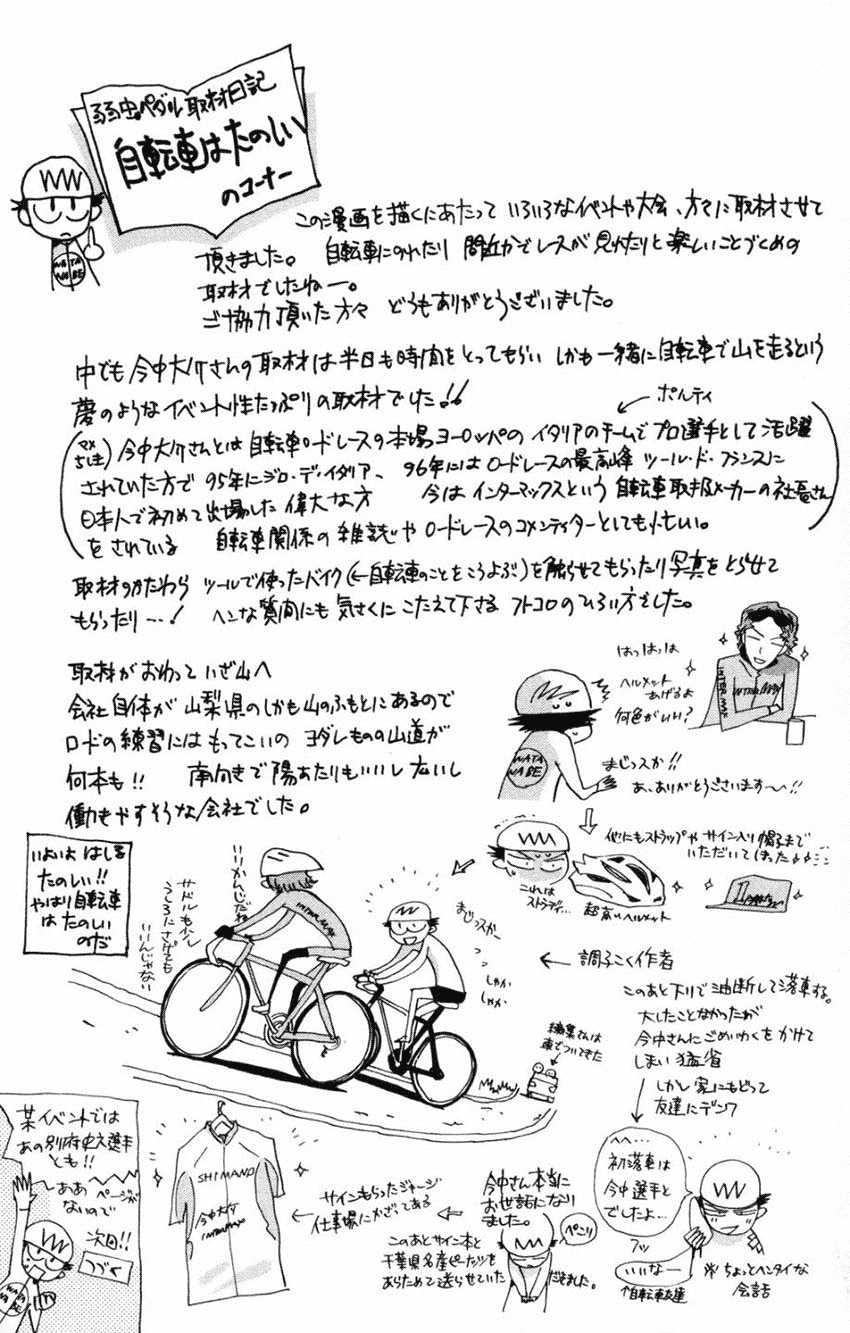 弱虫ペダル取材日記
自転車はたのしい
のコーナー
WATA
NABE
この漫画を描くにあたって いろいろなイベントや大会、方々に取材させて
頂きました。 自転車にのれたり 間近かでレースが見れたりと楽しいことづくめの
取材でしたねー。
ご協力頂いた方々 どうもありがとうございました。
中でも今中大介さんの取材は半日も時間をとってもらい しかも一緒に自転車で山を走るという
夢のようなイベント性たっぷりの取材でした!!
ポルティ
(マメちしき) 今中大介さんとは自転車ロードレースの本場ヨーロッパのイタリアのチームでプロ選手として活躍
されていた方で 95年にジロ・ディ・イタリア、 96年にはロードレースの最高峰 ツール・ド・フランスに
日本人で初めて出場した偉大な方 今はインターマックスという自転車取扱メーカーの社長さん
をされている 自転車関係の雑誌やロードレースのコメンテイターとしても忙しい。
取材のかたわら ツールで使ったバイク(←自転車のことをこうよぶ)を触らせてもらったり写真をとらせて
もらったり…! ヘンな質問にも気さくにこたえて下さる フトコロのひろい方でした。
はっはっは
ヘルメット
あげるよ
何色がいい?
INTERMAX
INTERMAX
取材がおわって いざ山へ
会社自体が山梨県のしかも山のふもとにあるので
ロードの練習にはもってこいの ヨダレものの山道が
何本も!! 南向きで陽あたりもいいし広いし
働きやすそうな会社でした。
WATA
NABE
まじっスか!!
あ、ありがとうございます〜〜!!
他にもストラップやサイン入り帽子まで
いただいてしまった
これは
ストラディ…
超高いヘルメット
いよいよ はしる
たのしい!!
やはり自転車
は たのしい
のだ
いいかんじだね
サドルもう少し
うしろにさげても
いいんじゃない
INTERMAX
まじっスかー
しゃか
しゃか
← 調子こく作者
このあと下りで油断して落車する。
大したことなかったが
今中さんにごめいわくをかけて
しまい 猛省
しかし家にもどって
友達にデンワ
編集さんは
車でついてきた
へへ…
初落車は
今中選手と
でしたよ…
フッ
いいなー
↑自転車友達
※ちょっとヘンタイな
会話
今中さん本当に
お世話になり
ました。
ぺこり
このあとサイン本と
千葉県名産ピーナッツを
あらためて送らせていただきました。
サインもらったジャージ
← 仕事場にかざってある
SHIMANO
今中大介
INTERMAX
某イベントでは
あの別府史之選手
とも!!
ーああ ページが
ないので
次回!!
つづく
WATA
NABE